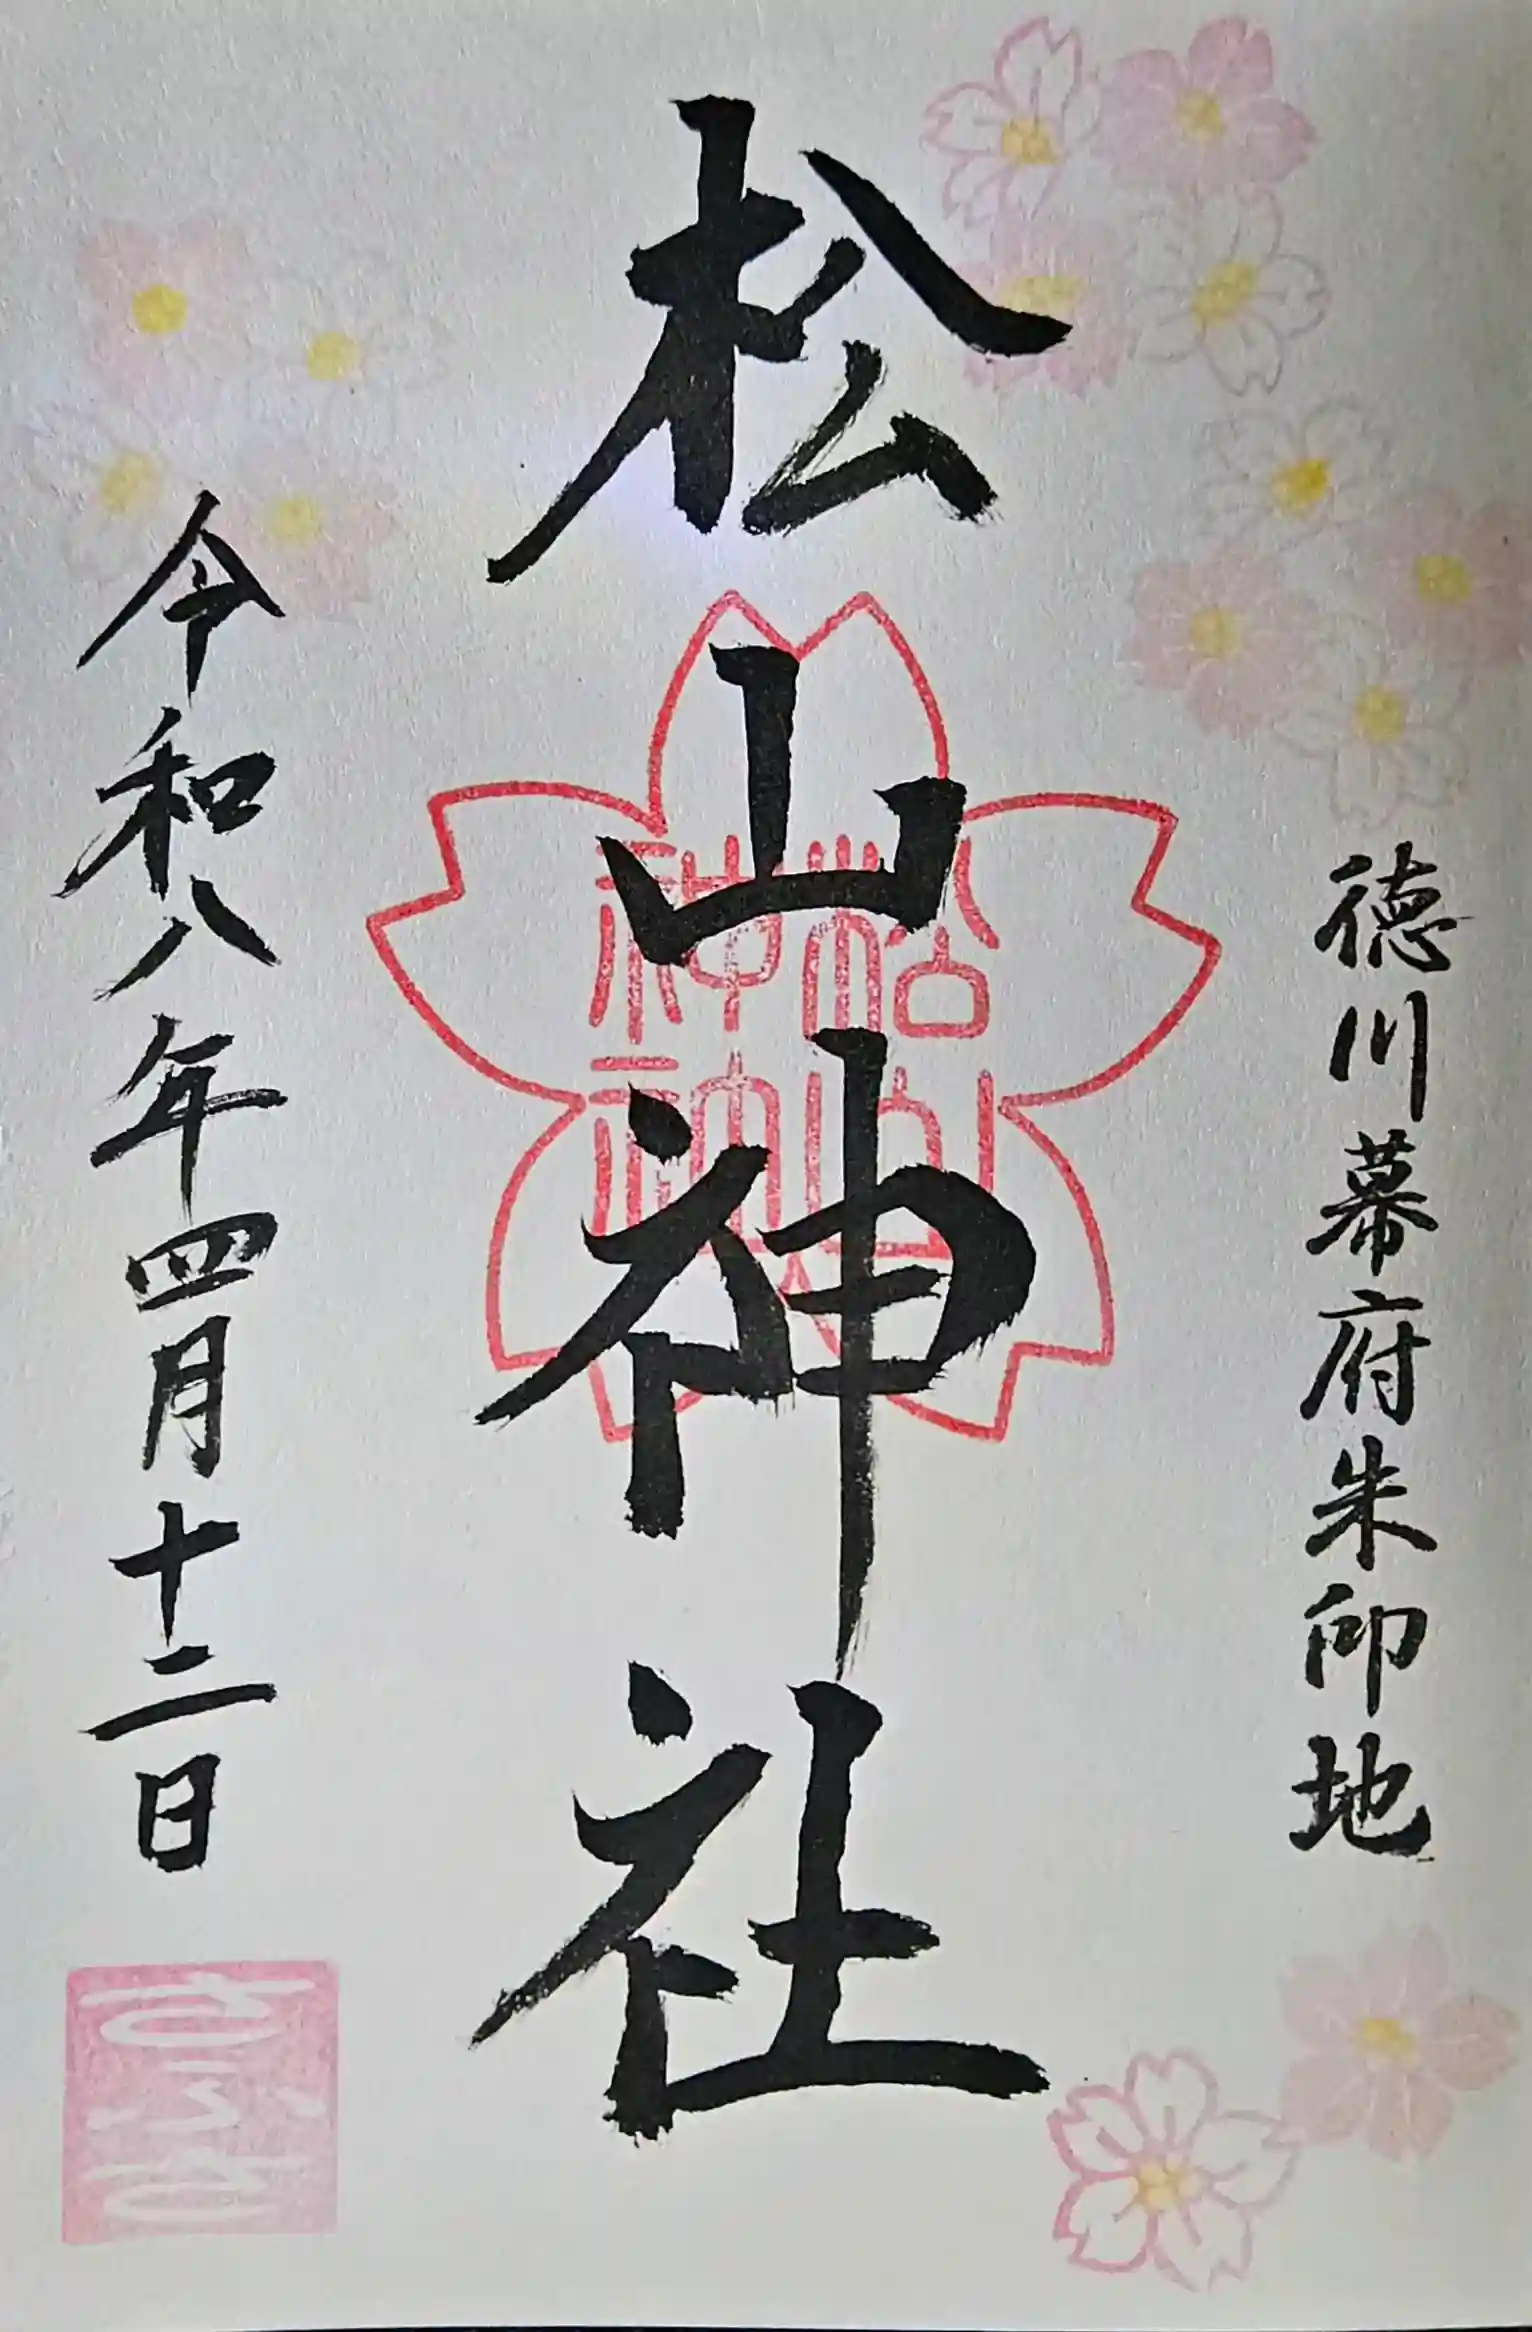 徳川幕府朱印地
松山神社
松山神社
令和八年四月十二日